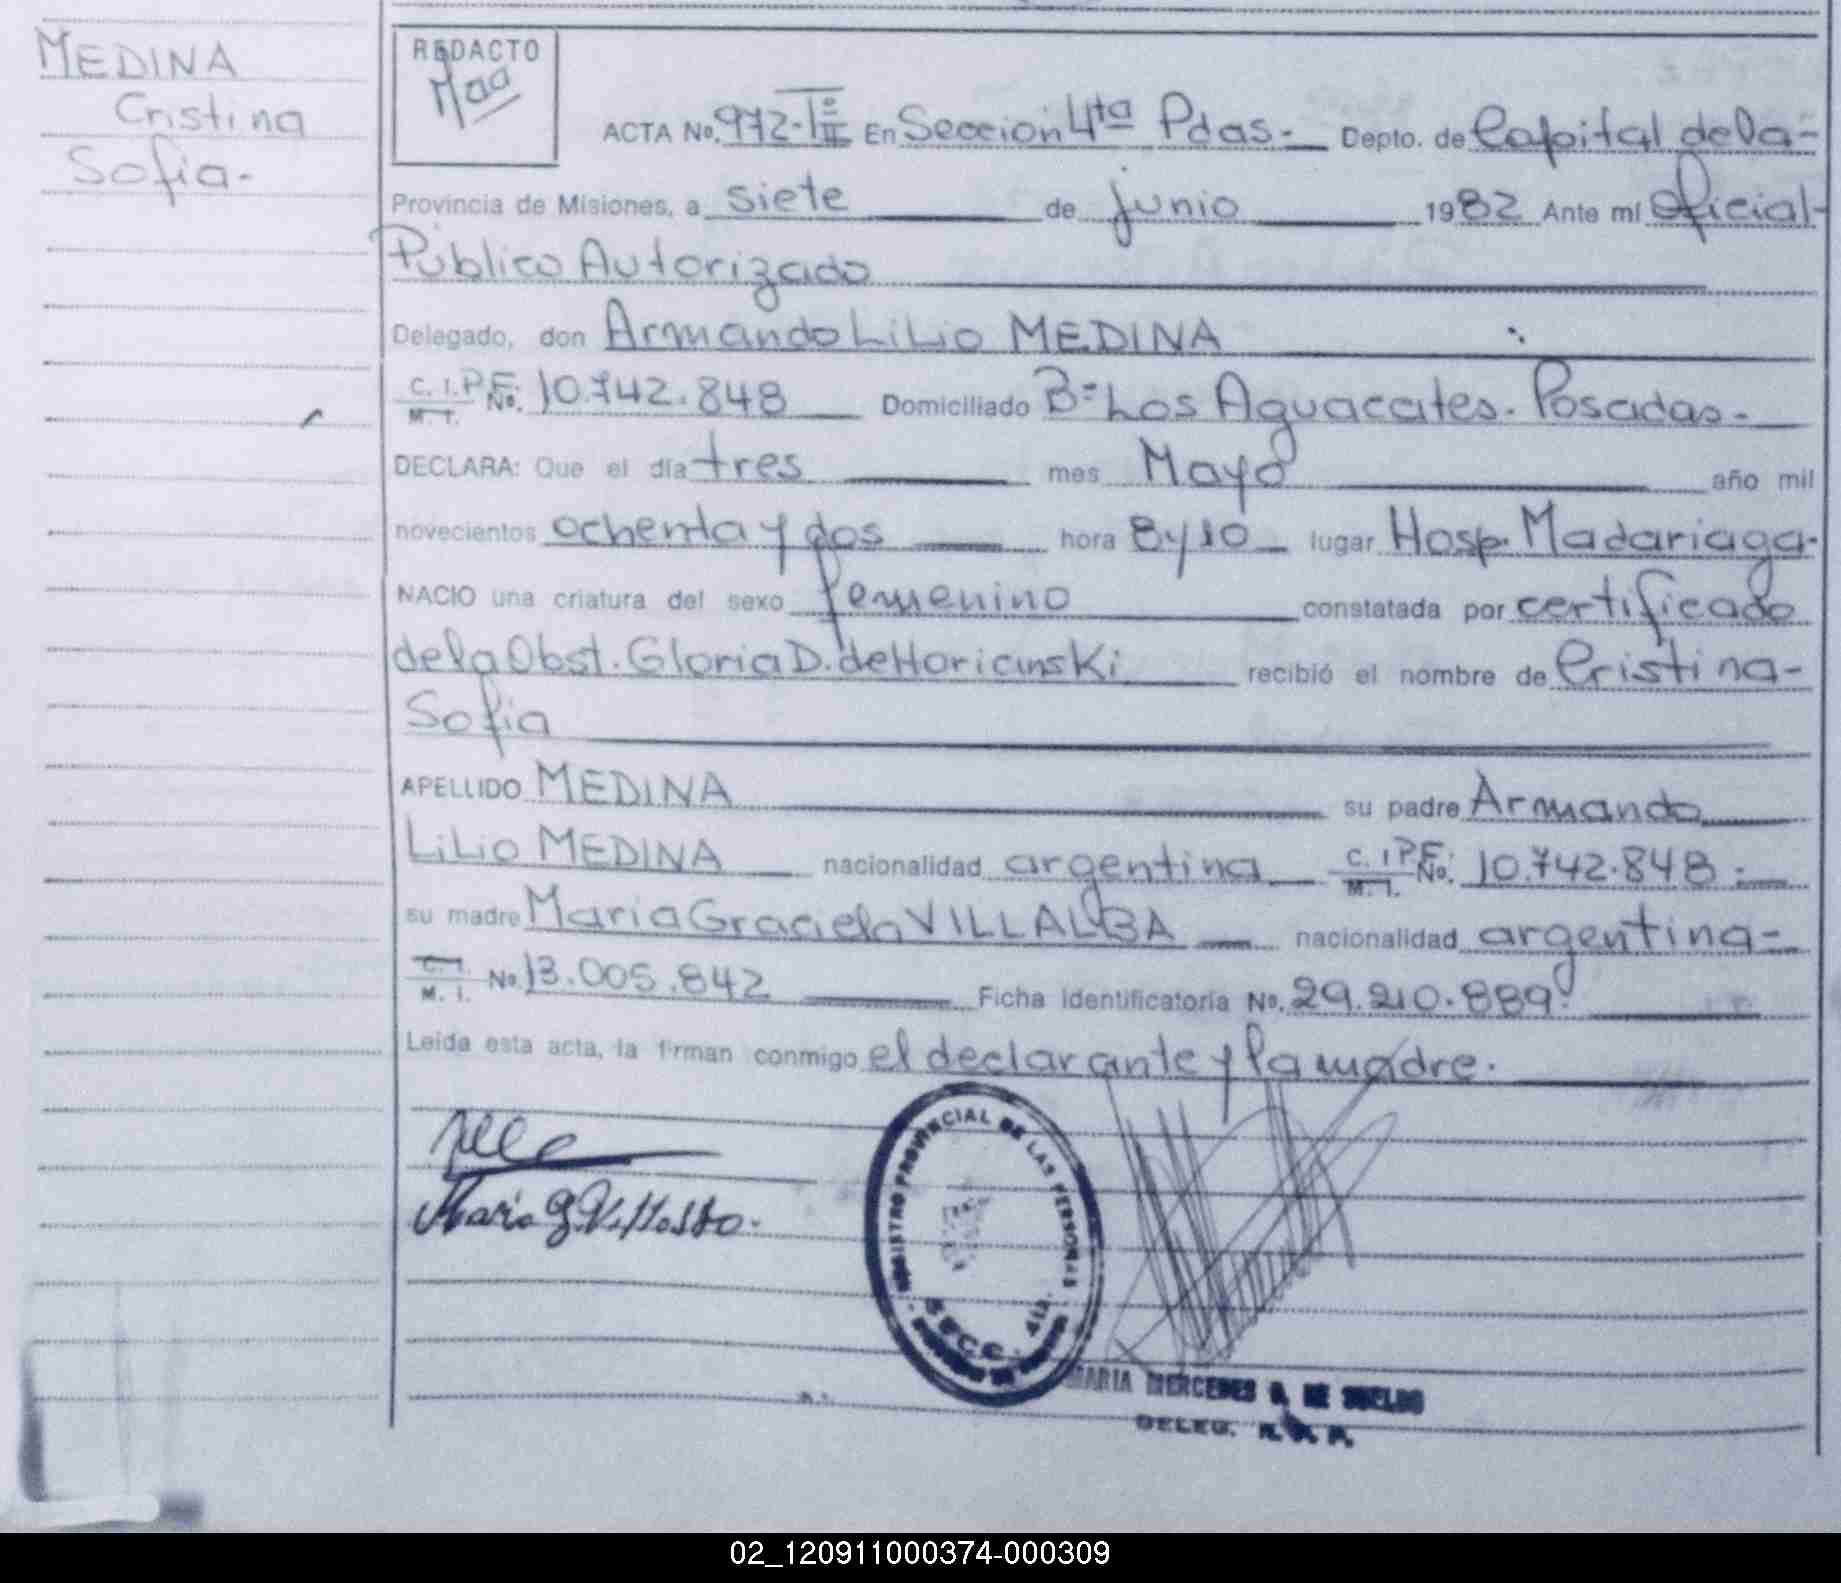 MEDINA
Cristina
Sofia.-
REDACTO
ACTA No. 972-Tº II En Sección 4ta Pdas.- Depto. de Capital de la-
Provincia de Misiones, a siete de junio 1982 Ante mí Oficial-
Público Autorizado
Delegado, don Armando Lilio MEDINA
C. I. P.F. No. 10.742.848 Domiciliado Bº Los Aguacates. Posadas.-
M. I.
DECLARA: Que el día tres mes Mayo año mil
novecientos ochenta y dos hora 8y10 lugar Hosp. Madariaga.
NACIO una criatura del sexo femenino constatada por certificado
de la Obst. Gloria D. de Horianski recibió el nombre de Cristina-
Sofia
APELLIDO MEDINA su padre Armando
Lilio MEDINA nacionalidad argentina C. I P.F. No. 10.742.848.-
M. I.
su madre Maria Graciela VILLALBA nacionalidad argentina-
C. I. No. 13.005.842 Ficha identificatoria No. 29.210.889.
M. I.
Leída esta acta, la firman conmigo el declarante y la madre.
Maria G. Villalba.
REGISTRO PROVINCIAL DE LAS PERSONAS
SECC. 4ta.
MARIA MERCEDES DE SUELDO
DELEG. R. P. P.
02_120911000374-000309